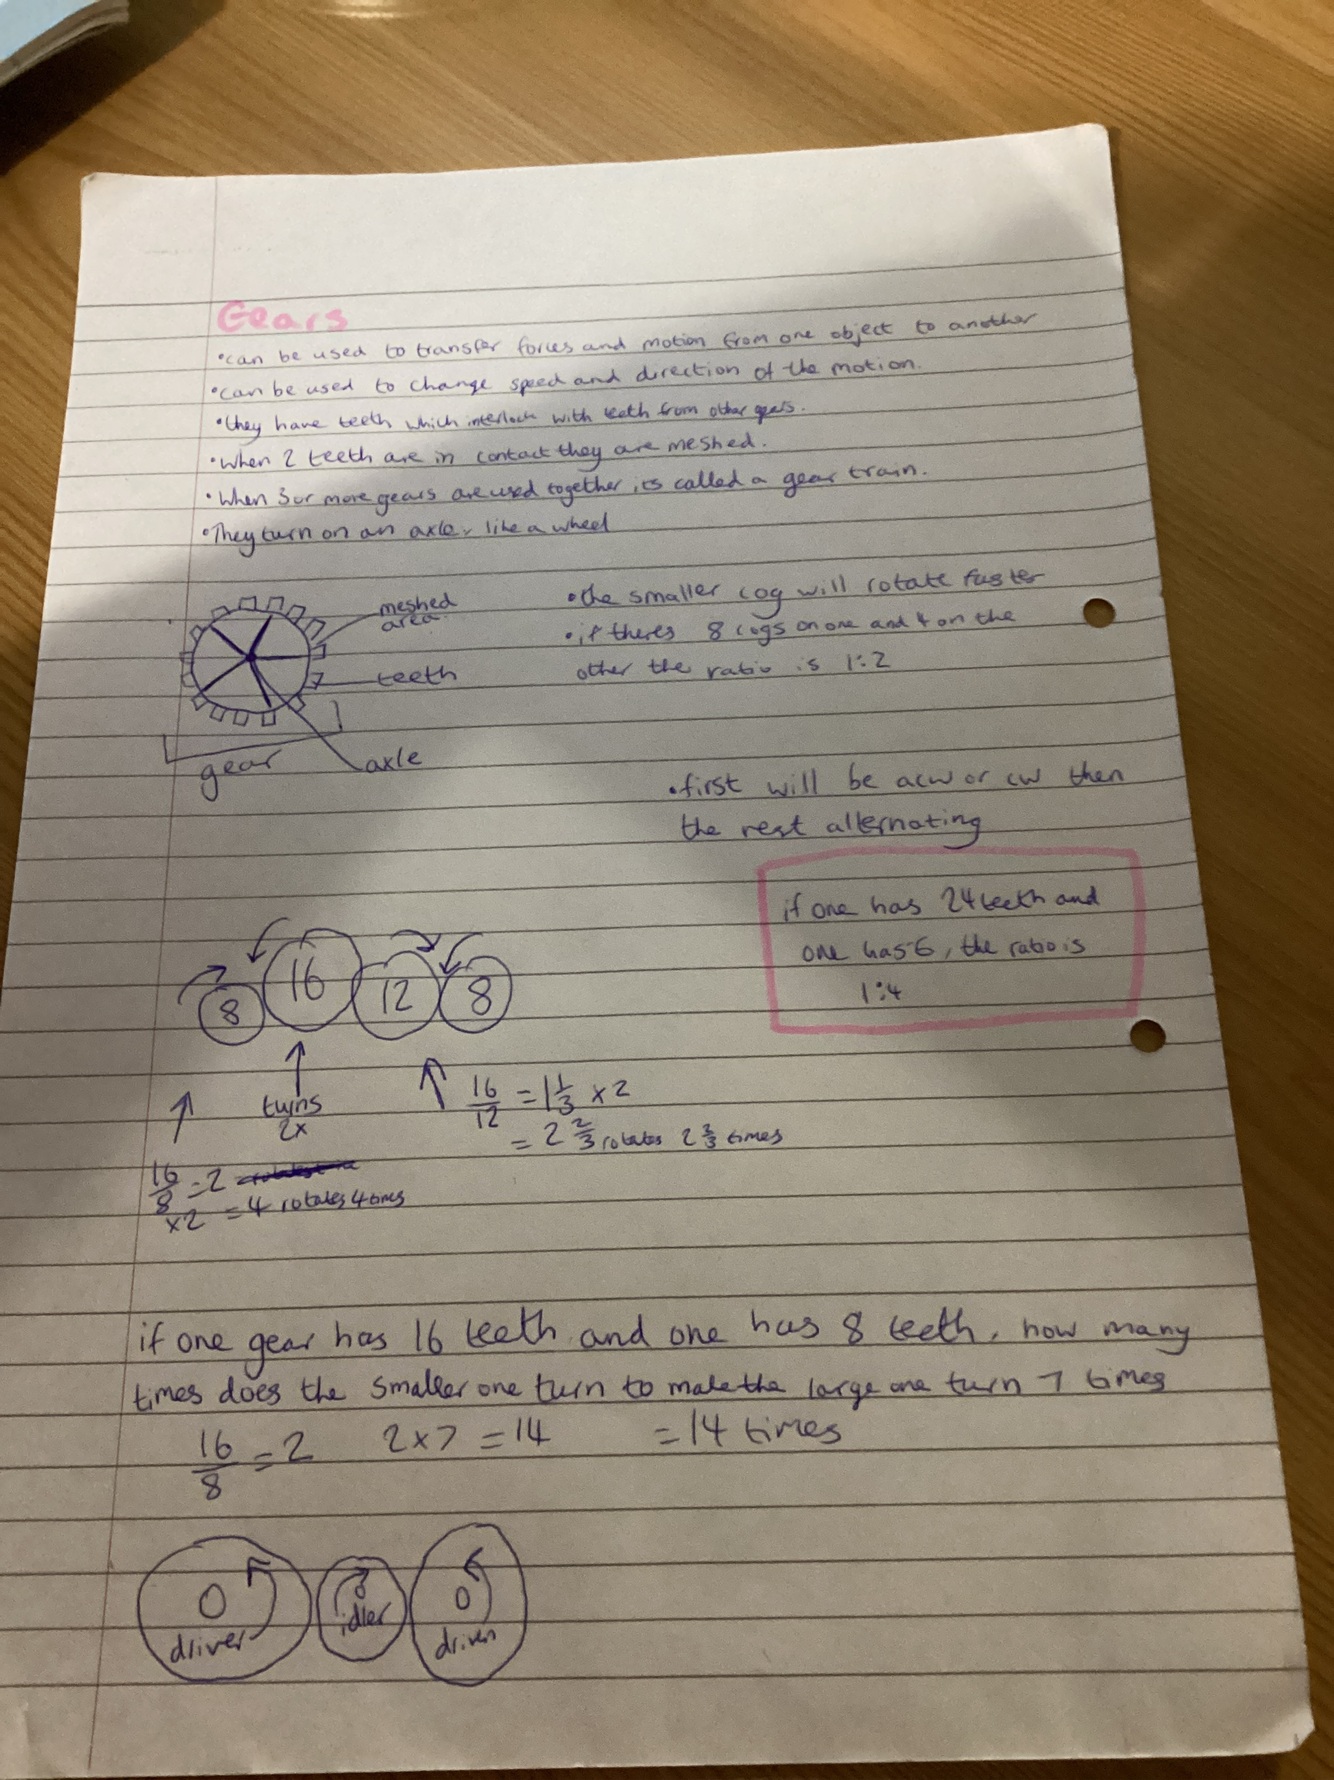 Gears
•can be used to transfer forces and motion from one object to another
•can be used to change speed and direction of the motion.
•they have teeth which interlock with teeth from other gears.
•when 2 teeth are in contact they are meshed.
•when 3 or more gears are used together, its called a gear train.
•They turn on an axle, like a wheel
meshed
area
teeth
gear
axle
•the smaller cog will rotate faster
•if theres 8 cogs on one and 4 on the
other the ratio is 1:2
•first will be acw or cw then
the rest alternating
if one has 24 teeth and
one has 6, the ratio is
1:4
8 16 12 8
turns
2x
16/12 = 1 1/3 x 2
= 2 2/3 rotates 2 2/3 times
16/8 = 2
x2 = 4 rotates 4 times
if one gear has 16 teeth and one has 8 teeth, how many
times does the smaller one turn to make the large one turn 7 times
16/8 = 2 2x7 = 14 = 14 times
driver idler driven